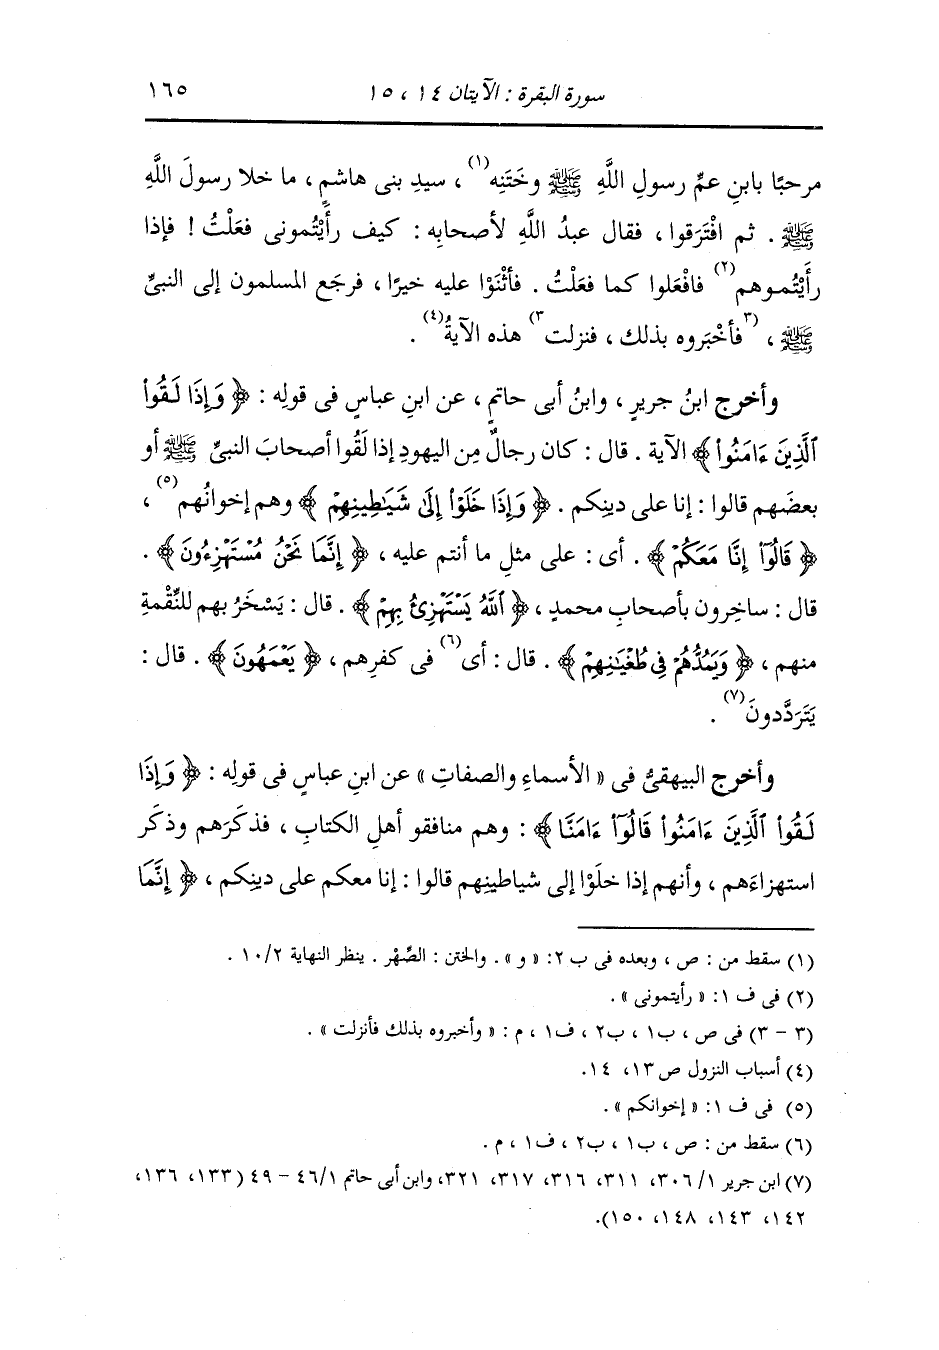 سورة البقرة : الآيتان ١٤ ، ١٥ ١٦٥
مرحبًا بابنِ عمِّ رسولِ اللَّهِ ﷺ وخَتَنِه(١) ، سيدِ بنى هاشمٍ ، ما خلا رسولَ اللَّهِ
ﷺ . ثم افْتَرَقوا ، فقال عبدُ اللَّهِ لأصحابِه : كيف رأَيْتُمونى فعَلْتُ ! فإذا
رأَيْتُموهم(٢) فافْعَلوا كما فعَلْتُ . فأَثْنَوْا عليه خيرًا ، فرجَع المسلمون إلى النبىِّ
ﷺ ، (٣فأَخْبَروه بذلك ، فنزلت٣) هذه الآيةُ(٤) .
وأخرج ابنُ جريرٍ ، وابنُ أبى حاتمٍ ، عن ابنِ عباسٍ فى قولِه : ﴿ وَإِذَا لَقُوا۟
ٱلَّذِينَ ءَامَنُوا۟ ﴾ الآية . قال : كان رجالٌ مِن اليهودِ إذا لَقُوا أصحابَ النبىِّ ﷺ أو
بعضَهم قالوا : إنا على دينِكم . ﴿ وَإِذَا خَلَوْا۟ إِلَىٰ شَيَـٰطِينِهِمْ ﴾ وهم إخوانُهم(٥) ،
﴿ قَالُوٓا۟ إِنَّا مَعَكُمْ ﴾ . أى : على مثلِ ما أنتم عليه ، ﴿ إِنَّمَا نَحْنُ مُسْتَهْزِءُونَ ﴾ .
قال : ساخِرون بأصحابِ محمدٍ ، ﴿ ٱللَّهُ يَسْتَهْزِئُ بِهِمْ ﴾ . قال : يَسْخَرُ بهم للنِّقْمةِ
منهم ، ﴿ وَيَمُدُّهُمْ فِى طُغْيَـٰنِهِمْ ﴾ . قال : أى(٦) فى كفرِهم ، ﴿ يَعْمَهُونَ ﴾ . قال :
يَتَرَدَّدونَ(٧) .
وأخرج البيهقىُّ فى « الأسماءِ والصفاتِ » عن ابنِ عباسٍ فى قولِه : ﴿ وَإِذَا
لَقُوا۟ ٱلَّذِينَ ءَامَنُوا۟ قَالُوٓا۟ ءَامَنَّا ﴾ : وهم منافقو أهلِ الكتابِ ، فذكَرَهم وذكَر
استهزاءَهم ، وأنهم إذا خلَوْا إلى شياطينِهم قالوا : إنا معكم على دينِكم ، ﴿ إِنَّمَا
(١) سقط من : ص ، وبعده فى ب ٢: « و » . والختن : الصِّهْر . ينظر النهاية ١٠/٢ .
(٢) فى ف ١: « رأيتمونى » .
(٣ - ٣) فى ص ، ب١ ، ب٢ ، ف١ ، م : « وأخبروه بذلك فأنزلت » .
(٤) أسباب النزول ص ١٣، ١٤.
(٥) فى ف ١: « إخوانكم » .
(٦) سقط من : ص ، ب١ ، ب٢ ، ف١ ، م .
(٧) ابن جرير ١/ ٣٠٦، ٣١١، ٣١٦، ٣١٧، ٣٢١، وابن أبى حاتم ٤٦/١ - ٤٩ (١٣٣، ١٣٦،
١٤٢، ١٤٣، ١٤٨، ١٥٠).